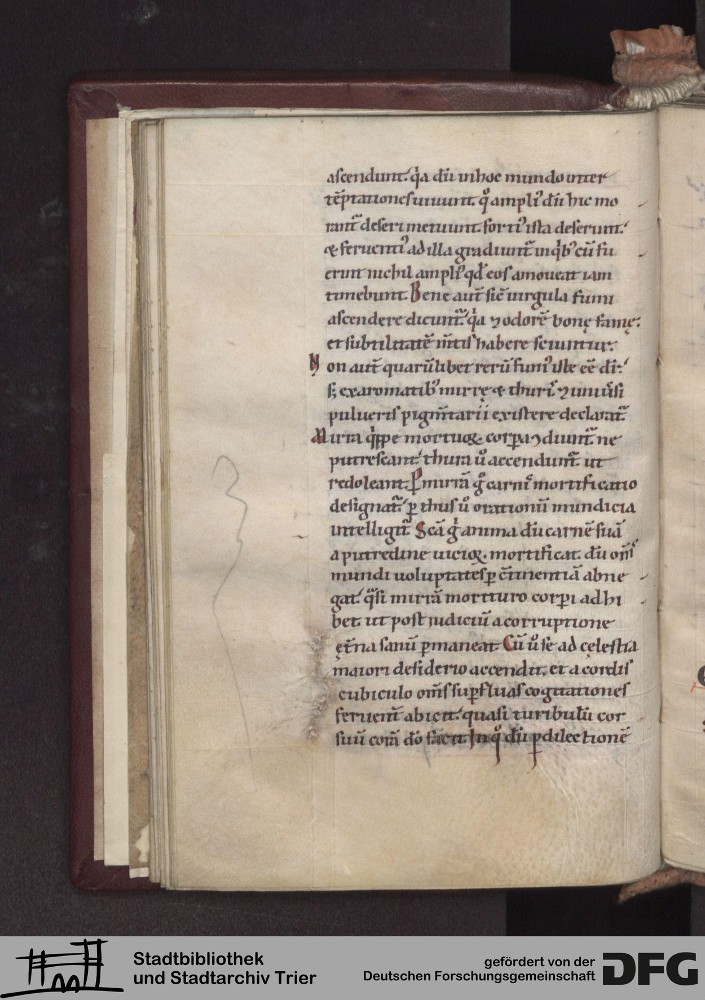 ascendunt. q̇a dū in hoc mundo inter
tēptationes uiuunt. q̊ ampliꝰ dū hic mo
rant̃ deseri metuunt. fortiꝰ ista deserunt.
& feruentiꝰ ad illa gradiunt̃ in q̇bꝰ cū fu
erint nichil ampliꝰ qđ eos amoueat iam
timebunt. Bene aut̃ sic̄ uirgula fumi
ascendere dicunt̃. q̇a ⁊ odorē bonę famę.
et subtilitatē m̄tis habere sciuntur.
Non aut̃ quarūlibet rerū fumꝰ iste eē dr̄.
s; ex aromatibꝰ mirrę & thuris ⁊ uniūsi
pulueris pigm̄tarii existere declarat̃.
Mirra q̇ppe mortuoꝝ corpa ↄdiunt̃ ne
putrescant. thura ů accendunt̃ ut
redoleant. P mirrā g̊ carnis mortificatio
designat̃. ꝑ thus ů orationū mundicia
intelligit̃. Sc̄a g̊ anima dū carnē suā
a putredine uicioꝝ mortificat. dū om̄s
mundi uoluptates ꝑ ↄtinentiā abne
gat. q̊si mirrā mortuo corpi adhi
bet. ut post iudiciū a corruptione
ęt̄na sanū ꝑmaneat. Cū ů se ad cęlestia
maiori desiderio accendit. et a cordis
cubiculo om̄s suꝑfluas cogitationes
feruent̄ abicit. quasi turibulū cor
suū corā dō facit. In q̊ dū ꝑ dilectionē
Stadtbibliothek
und Stadtarchiv Trier
gefördert von der
Deutschen Forschungsgemeinschaft
DFG